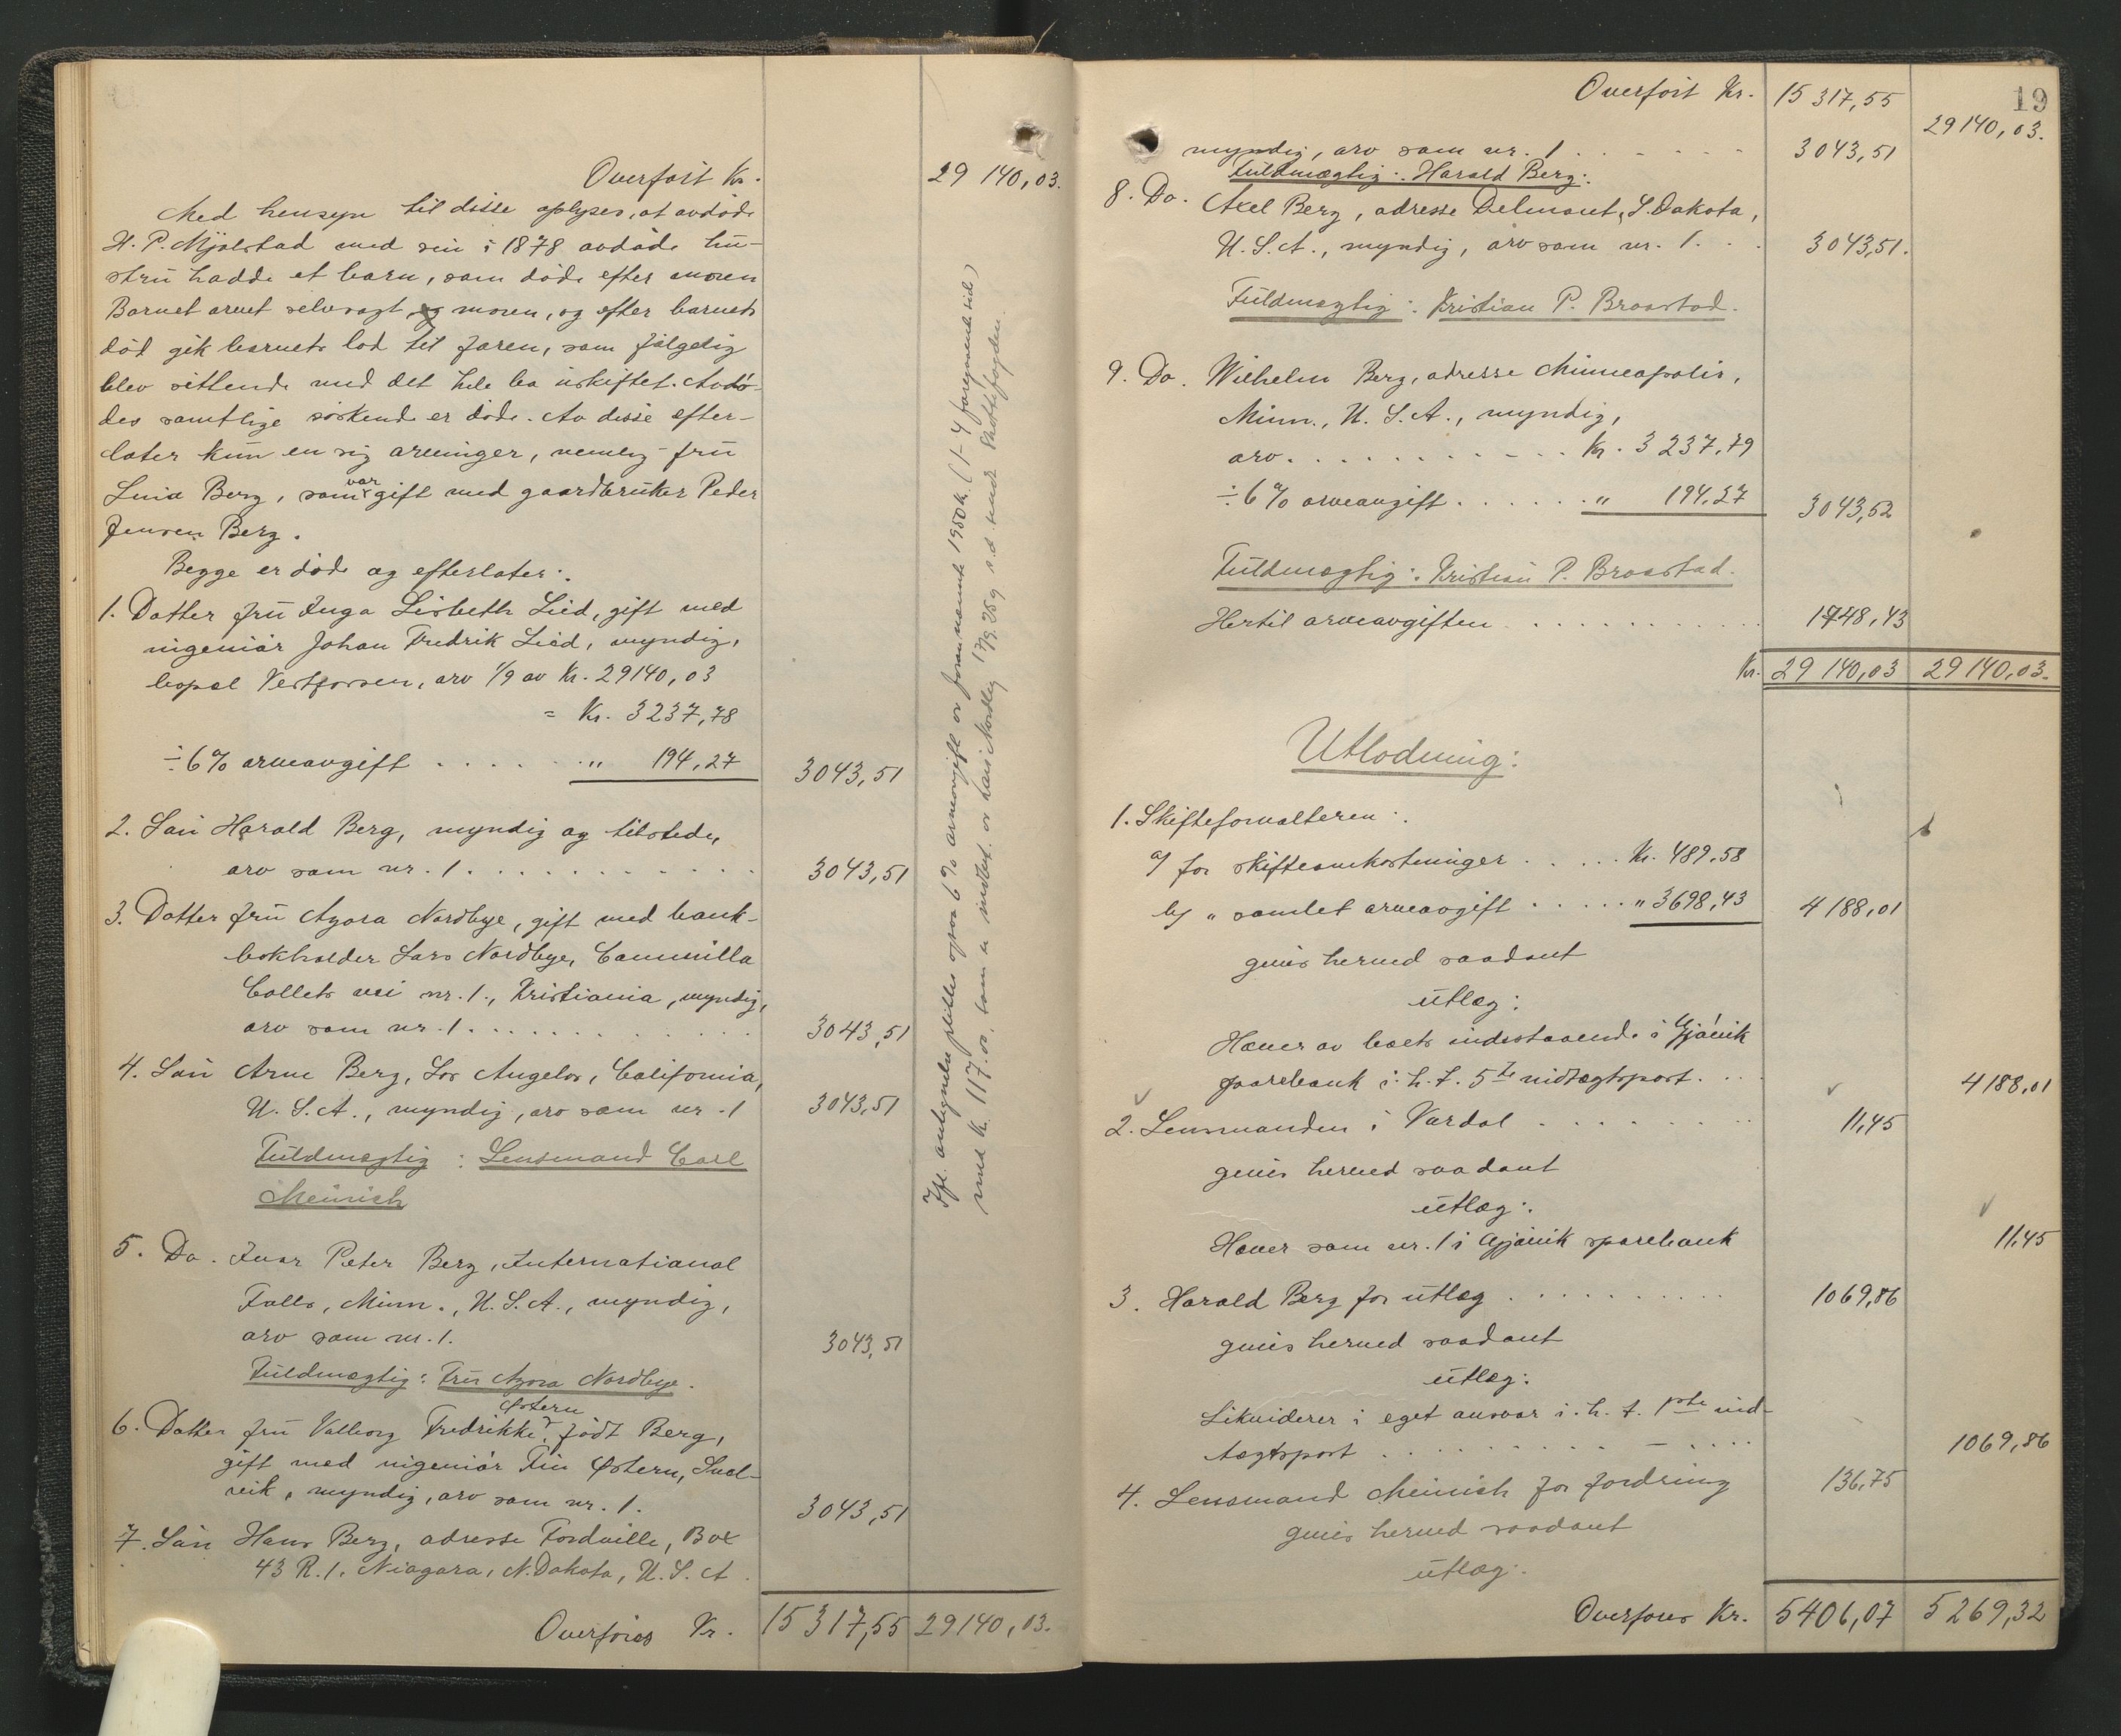 Overført Kr. 29 140,03.
Med hensyn til disse oplyses, at avdøde
H. P. Mjølstad med sin i 1878 avdøde hu-
stru hadde et barn, som døde efter moren
Barnet arvet selvsagt og moren, og efter barnets
død gik barnets lod til faren, som følgelig
blev sittende med det hele bo uskiftet. Avdø-
des samtlige søskend er døde. Av disse efter-
later kun en sig arvinger, nemlig fru
Lina Berg, som var gift med gaardbruker Peder
Jensen Berg.
Begge er døde og efterlater:
1. Datter fru Inga Lisbeth Lied, gift med
ingeniør Johan Fredrik Lied, myndig,
bopæl Vestfossen, arv 1/9 av Kr. 29140,03
= Kr. 3237,78
÷ 6% arveavgift . . . . . . " 194,27 3043,51
2. Søn Harald Berg, myndig og tilstede,
arv som nr. 1. . . . . . . . . . . 3043,51
3. Datter fru Agora Nordbye, gift med bank-
bokholder Lars Nordbye, Cammilla
Collets vei nr. 1., Kristiania, myndig,
arv som nr. 1. . . . . . . . . . . 3043,51
4. Søn Arne Berg, Los Angelos, California,
U. S. A., myndig, arv som nr. 1 3043,51
Fuldmægtig: Lensmand Carl
Meinich
5. Do. Ivar Peter Berg, International
Falls, Minn., U. S. A., myndig,
arv som nr. 1. 3043,51
Fuldmægtig: Fru Agora Nordbye.
6. Datter fru Valborg Fredrikke Østern, født Berg,
gift med ingeniør Fin Østern, Svel-
vik, myndig, arv som nr. 1. 3043,51
7. Søn Hans Berg, adresse Fordville, Box
43 R. 1. Niagara, N. Dakota, U. S. A.
Overføres Kr. 15 317,55 29140,03.
6% arveavgift av forannævnte 1950 kr. (1-4 foregaaende side)
med kr. 117.00, som er indbet.
19
Overført Kr. 15 317,55 29140,03.
myndig, arv som nr. 1 . . . . . . 3043,51
Fuldmægtig: Harald Berg:
8. Do. Axel Berg, adresse Delmont, S. Dakota,
U. S. A., myndig, arv som nr. 1. . . 3043,51.
Fuldmægtig: Kristian P. Braastad.
9. Do. Wilhelm Berg, adresse Minneapolis,
Minn., U. S. A., myndig,
arv. . . . . . . . . . . Kr. 3237,79
÷ 6% arveavgift . . . . . . " 194,27 3043,52
Fuldmægtig: Kristian P. Braastad.
Hertil arveavgiften . . . . . . . . . . . 1748,43
Kr. 29 140,03 29140,03.
Utlodning:
1. Skifteforvalteren:
a/ for skifteomkostninger . . . . . Kr. 489,58
b/ " samlet arveavgift . . . . . " 3698,43 4188,01
givies herved saadant
utlæg:
Hæver av boets indestaaende i Gjøvik
sparebank i. h. t. 5te indtægtspost. . . 4188,01
2. Lensmanden i Vardal . . . . . . . . . 11,45
givies herved saadant
utlæg:
Hæver som nr. 1 i Gjøvik sparebank 11,45
3. Harald Berg for utlæg . . . . . . . . . . 1069,86
givies herved saadant
utlæg:
Likviderer i eget ansvar i. h. t. 1ste ind-
tægtspost . . . . . . . . . . . . . 1069,86
4. Lensmand Meinich for fordring 136,75
givies herved saadant
utlæg:
Overføres Kr. 5406,07 5269,32